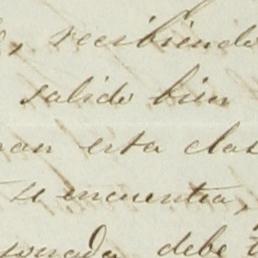 recibiendo
salido bien
esta clas
se encuentra,
debe